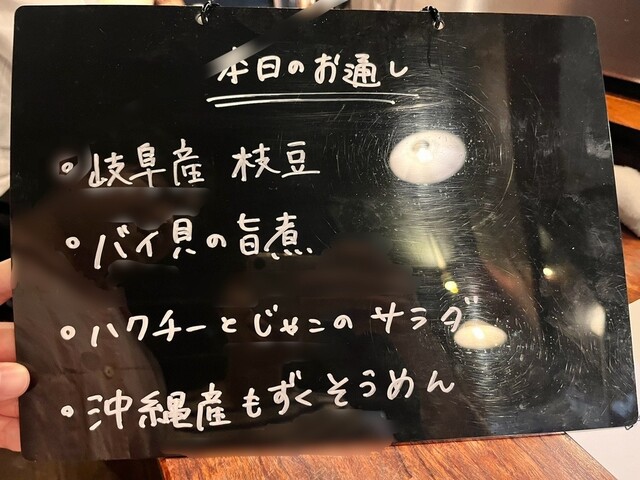 本日のお通し
• 岐阜産 枝豆
• バイ貝の旨煮
• ハクチーとじゃこのサラダ
• 沖縄産もずくそうめん